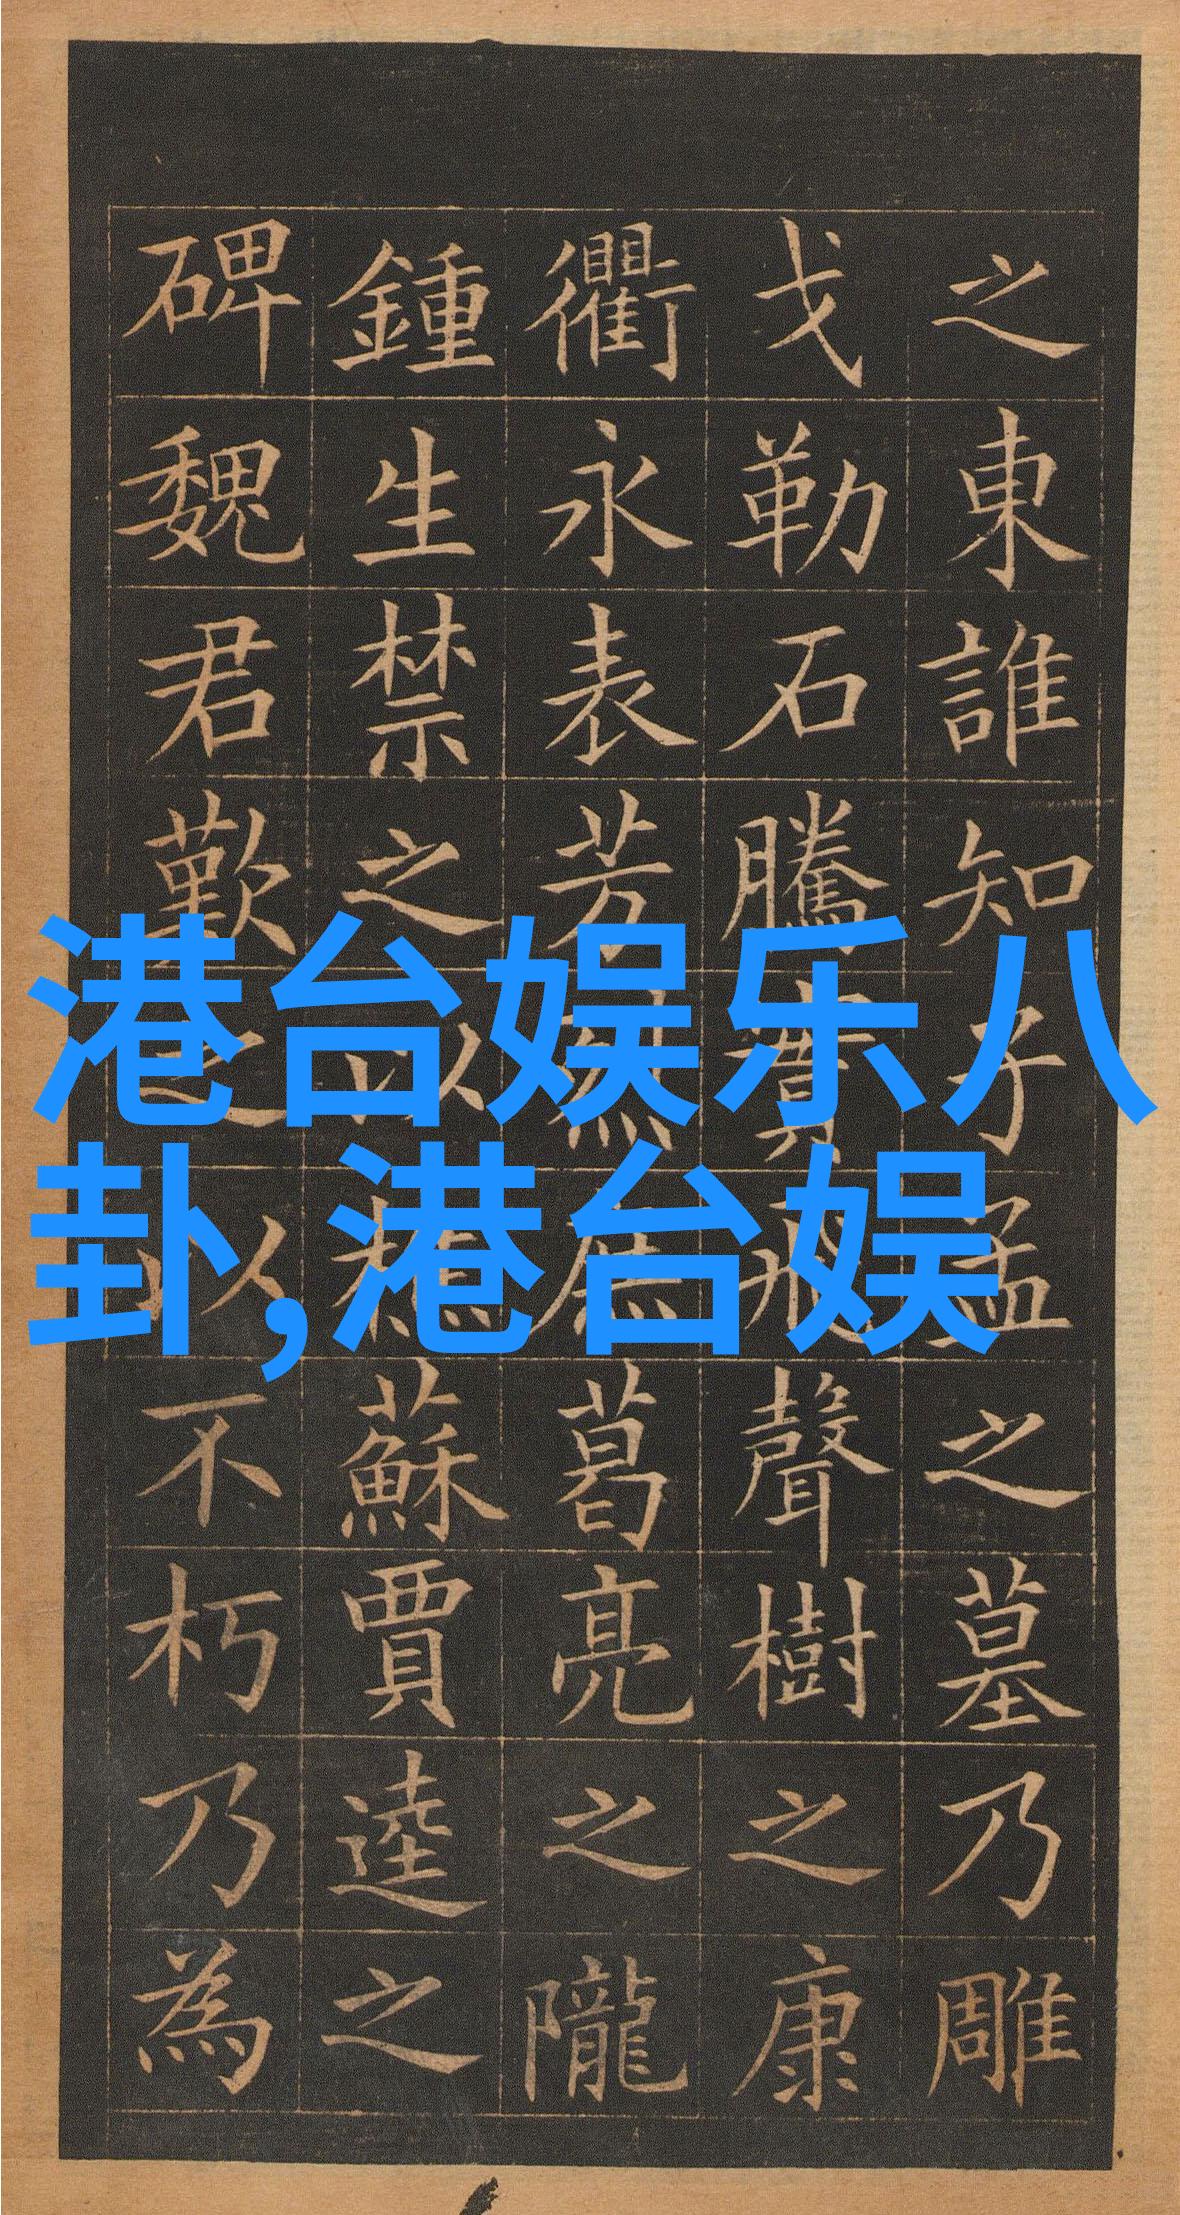 之東誰知子孟之墓乃雕
戈勒石騰實飛聲樹之康
衢永表芳烈庶葛亮之隴
鍾生禁之以樵蘇賈逵之
碑魏君歎之以不朽乃為
港台娱乐八
卦,港台娱